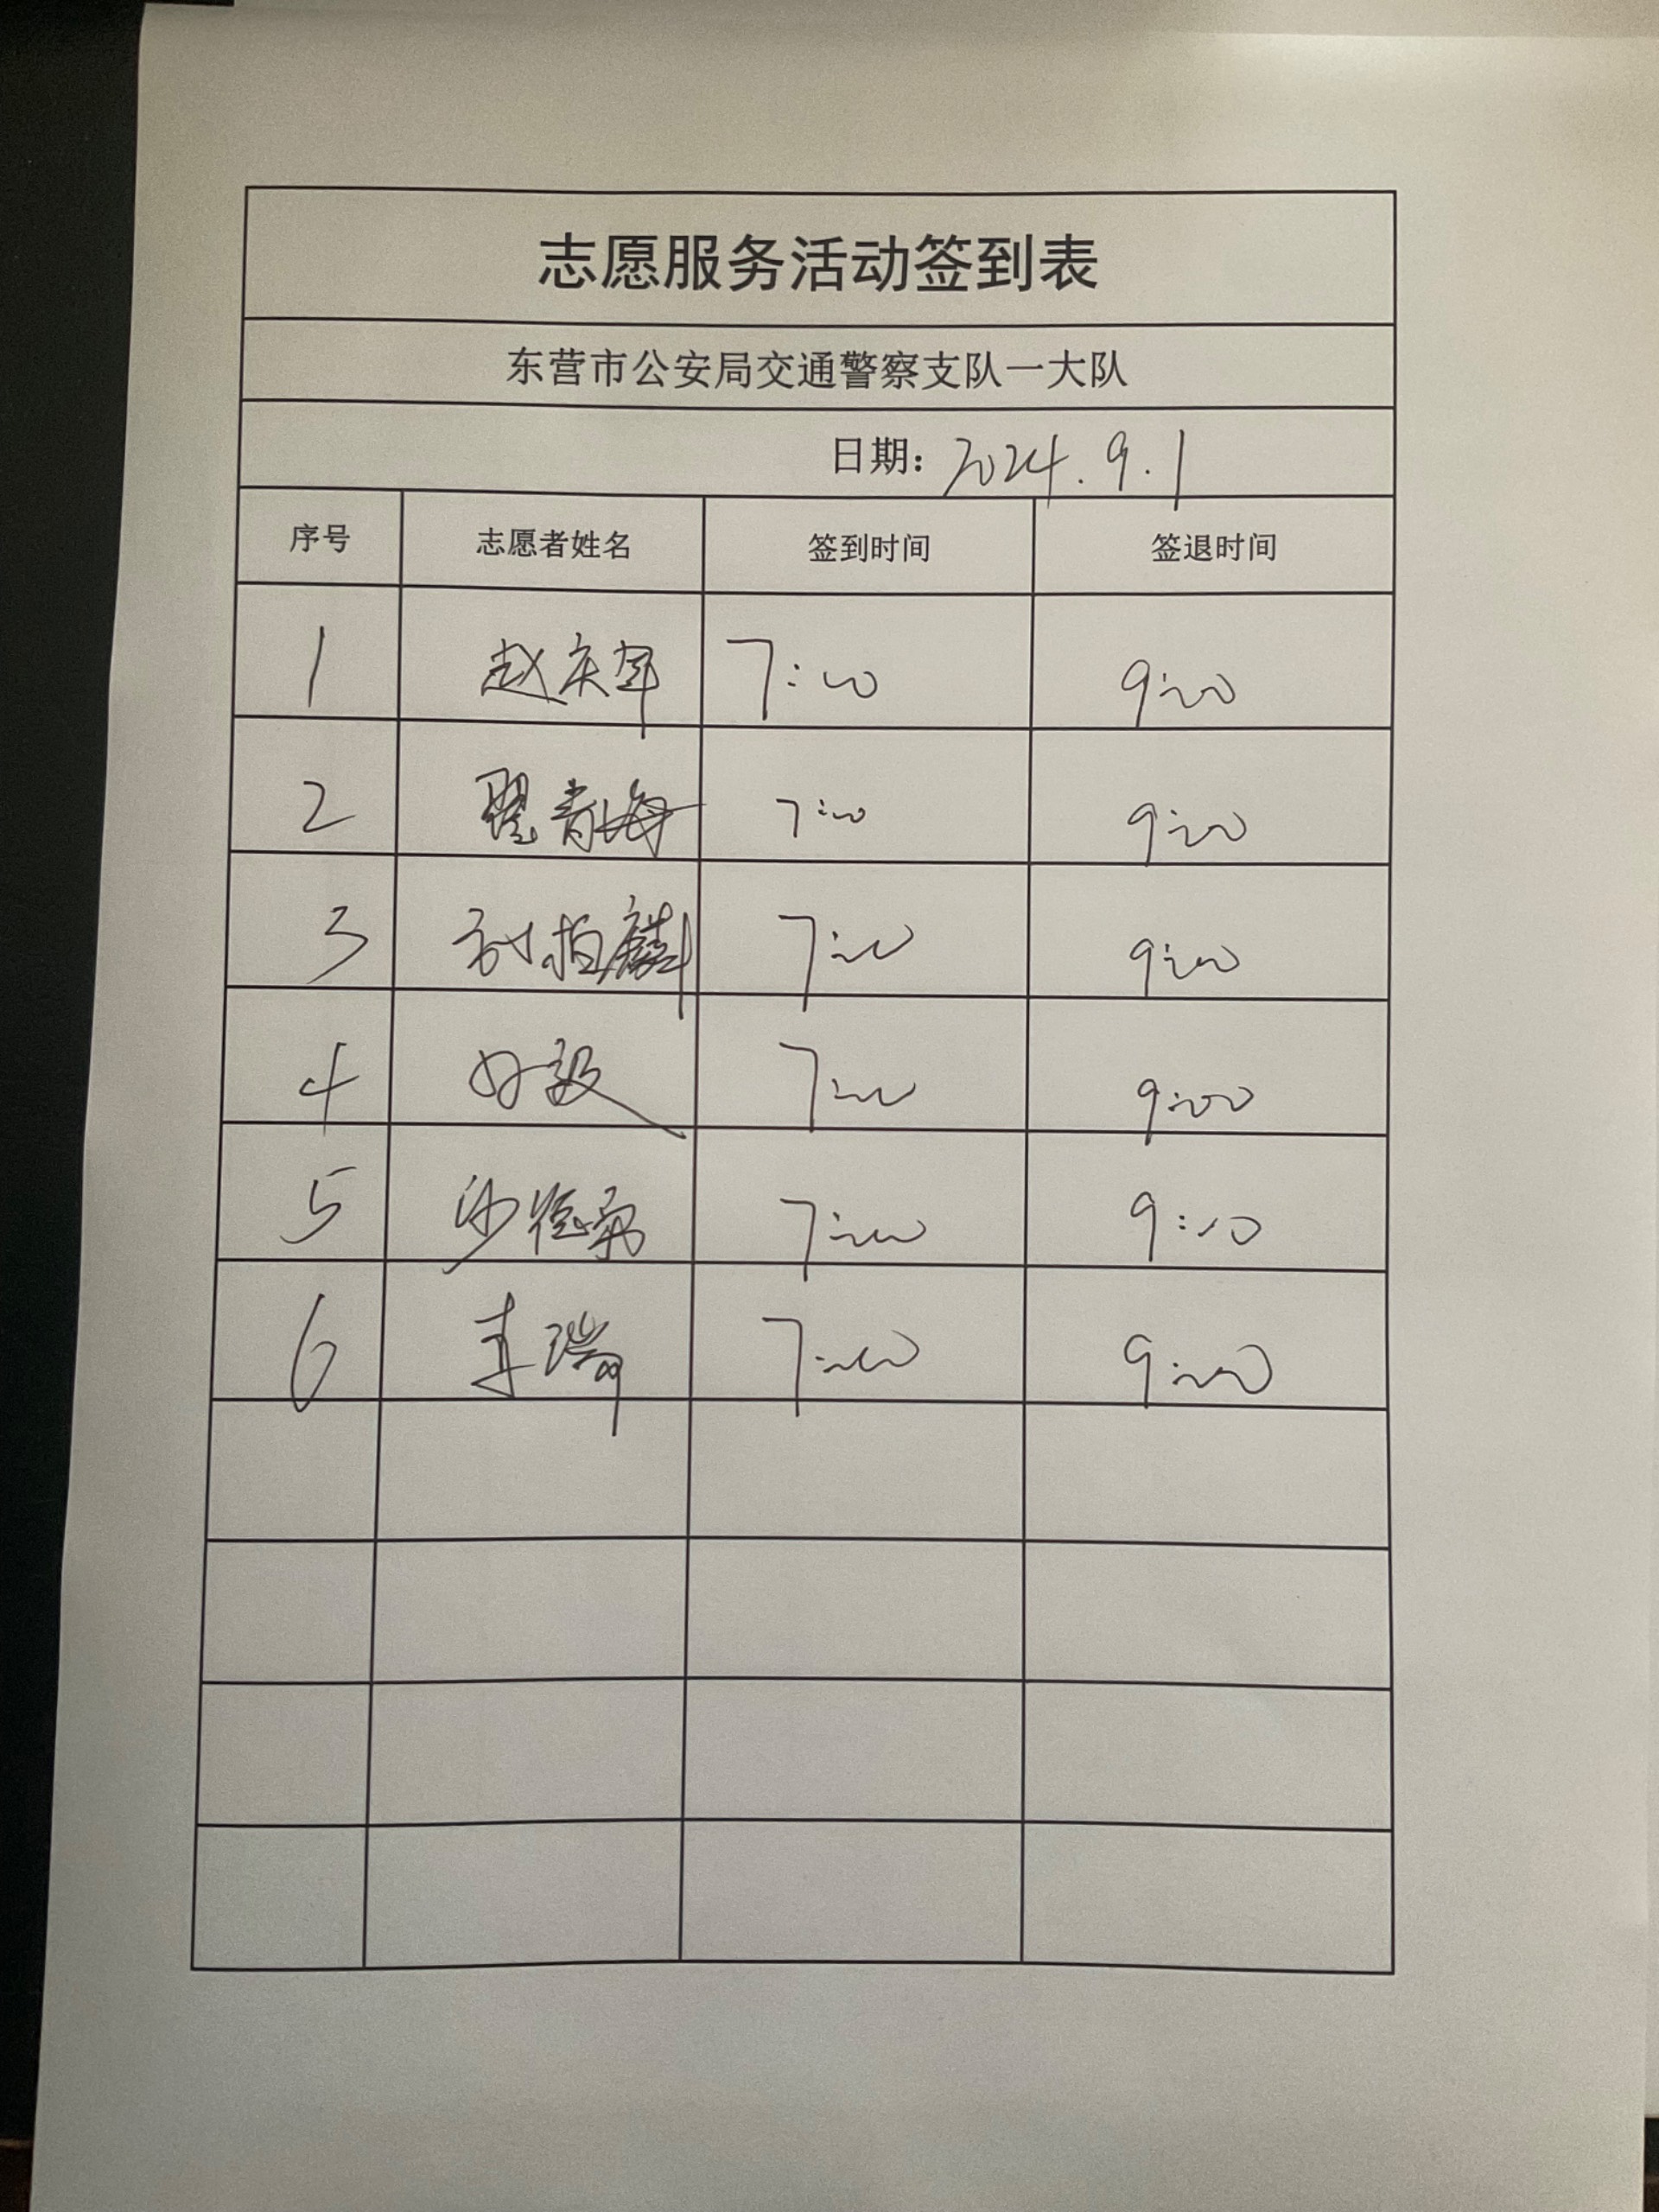 志愿服务活动签到表
东营市公安局交通警察支队一大队
日期：2024.9.1
序号 志愿者姓名 签到时间 签退时间
1 赵庆军 7:00 9:00
2 翟青海 7:00 9:00
3 刘柏麟 7:00 9:00
4 7:00 9:00
5 7:00 9:10
6 李瑞 7:00 9:00